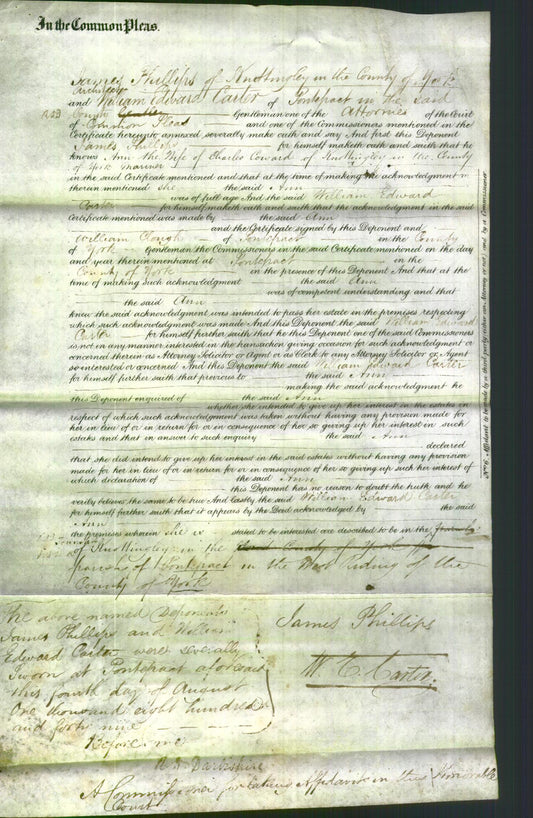 In the Common Pleas.
James Phillips of Knottingley in the County of York
Architect
and William Edward Carter of Pontefract in the said
County Gentleman one of the Attornies of the Court
of Common Pleas and one of the Commissioners mentioned in the
Certificate hereunto annexed severally make oath and say And first this Deponent
James Phillips for himself maketh oath and saith that he
knows Ann the Wife of Charles Coward of Knottingley in the County
of York Mariner
in the said Certificate mentioned and that at the time of making the acknowledgment
therein mentioned she the said Ann
was of full age And the said William Edward
Carter for himself maketh oath and saith that the acknowledgment in the said
Certificate mentioned was made by the said Ann
and the Certificate signed by this Deponent and
William Clough of Pontefract in the County
of York Gentleman the Commissioners in the said Certificate mentioned on the day
and year therein mentioned at Pontefract in the
County of York in the presence of this Deponent And that at the
time of making such acknowledgment the said Ann
was of competent understanding and that
the said Ann
knew the said acknowledgment was intended to pass her estate in the premises respecting
which such acknowledgment was made And this Deponent the said William Edward
Carter for himself further saith that he this Deponent one of the said Commissioners
is not in any manner interested in the transaction giving occasion for such acknowledgment or
concerned therein as Attorney Solicitor or Agent or as Clerk to any Attorney Solicitor or Agent
so interested or concerned And this Deponent the said William Edward Carter
for himself further saith that previous to the said Ann
making the said acknowledgment he
this Deponent enquired of the said Ann
whether she intended to give up her interest in the estates in
respect of which such acknowledgment was taken without having any provision made for
her in lieu of or in return for or in consequence of her so giving up her interest in such
estates and that in answer to such enquiry the said Ann
declared
that she did intend to give up her interest in the said estates without having any provision
made for her in lieu of or in return for or in consequence of her so giving up such her interest of
which declaration of the said Ann
this Deponent has no reason to doubt the truth and he
verily believes the same to be true And Lastly the said William Edward Carter
for himself further saith that it appears by the Deed acknowledged by the said
Ann
the premises wherein she is stated to be interested are described to be in the
of Knottingley in the County of York
parish of Pontefract in the West Riding of the
County of York
The above named Deponents
James Phillips and William
Edward Carter were severally
Sworn at Pontefract aforesaid
this fourth day of August
One thousand eight hundred
and forty nine
Before me
James Phillips
W. E. Carter
A Commissioner for taking Affidavits in this Honorable
Court
No. 6. Affidavit to be made by a third party (other an Attorney or not) and by a Commissioner